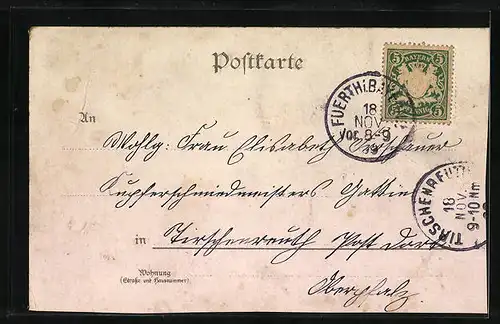 Postkarte
5 BAYERN 5
5 PFENNIG 5
FUERTH i. B.
18
NOV
Vor. 8-9
99
An
Wohlg. Frau Elisabeth
Kupferschmiedmeisters Gattin
TIRSCHENREUTH
18
NOV.
9-10 Nm
in Tirschenreuth Post dort
Wohnung
(Straße und Hausnummer)
Oberpfalz.